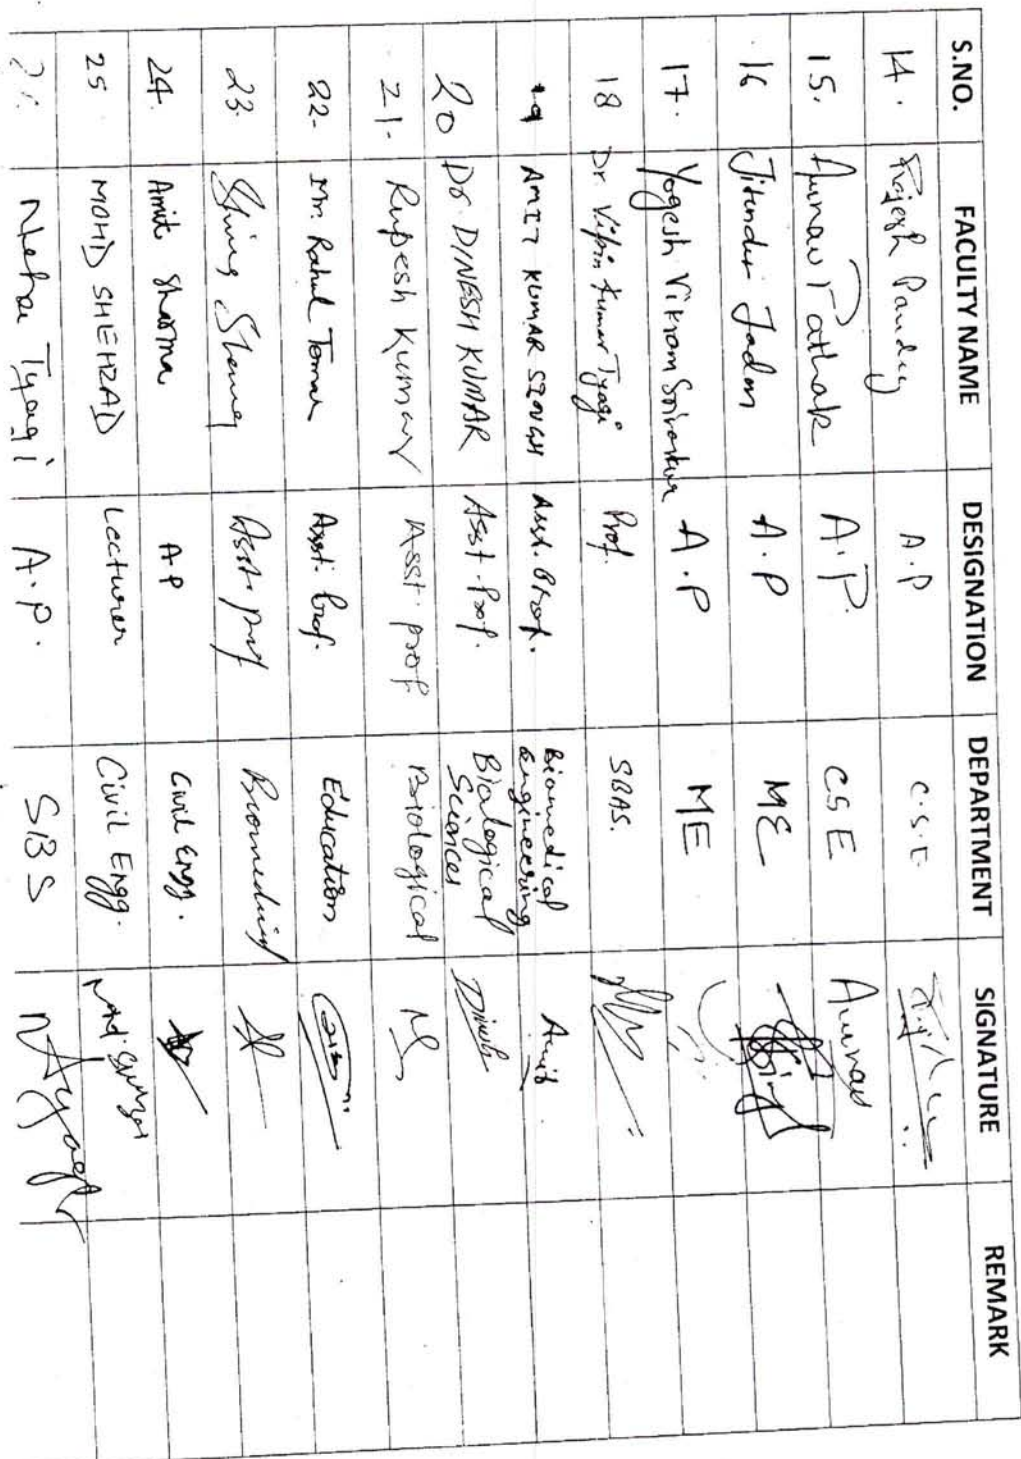 S.NO. FACULTY NAME DESIGNATION DEPARTMENT SIGNATURE REMARK
14. Rajesh Pandey A.P C.S.E
15. Arunav Pathak A.P. CSE Arunav
16 Jitender Jadon A.P ME
17. Yogesh Vikram Srivastava A.P ME
18 Dr. Vipin Kumar Tyagi Prof. SBAS.
19 AMIT KUMAR SINGH Asst. Prof. Biomedical engineering Amit
20 Dr. DINESH KUMAR Asst. Prof. Biological Sciences Dinesh
21. Rupesh Kumar Asst. prof Biological
22. Mr. Rahul Tomar Asst. Prof. Education
23. Sharma Asst. prof Biomedical
24. Amit Sharma AP Civil Engg.
25 MOHD SHEHZAD Lecturer Civil Engg. Mohd.
26. Neha Tyagi A.P. SBS NTyagi